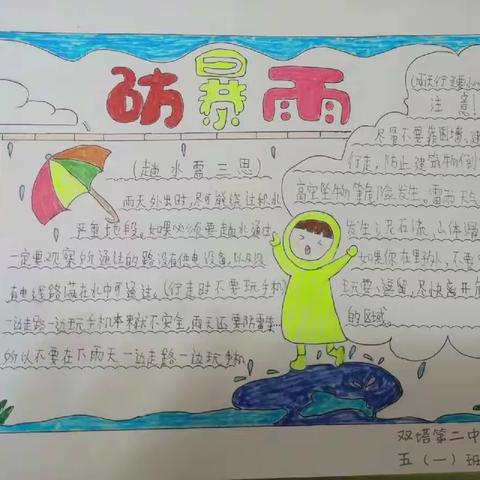 防暴雨
(趟水需三思)
雨天外出时,尽可能绕过积水
严重地段。如果必须要趟水通过
一定要观察所通过的路没有供电设备,以及没
有电线路满在水中可通过。(行走时不要玩手机)
一边走路一边玩手机本来就不安全,雨天还要防雷集
所以不要在下雨天一边走路一边玩手机
(雨天行走要小心
注意!
尽量不要靠围墙、建
行走,防止建筑物倒
高空坠物等危险发生。雷雨天气
发生泥石流、山体滑
如果你在野外,不要
玩耍、逗留,尽快离开
的区域。
双塔第二中
五(一)班